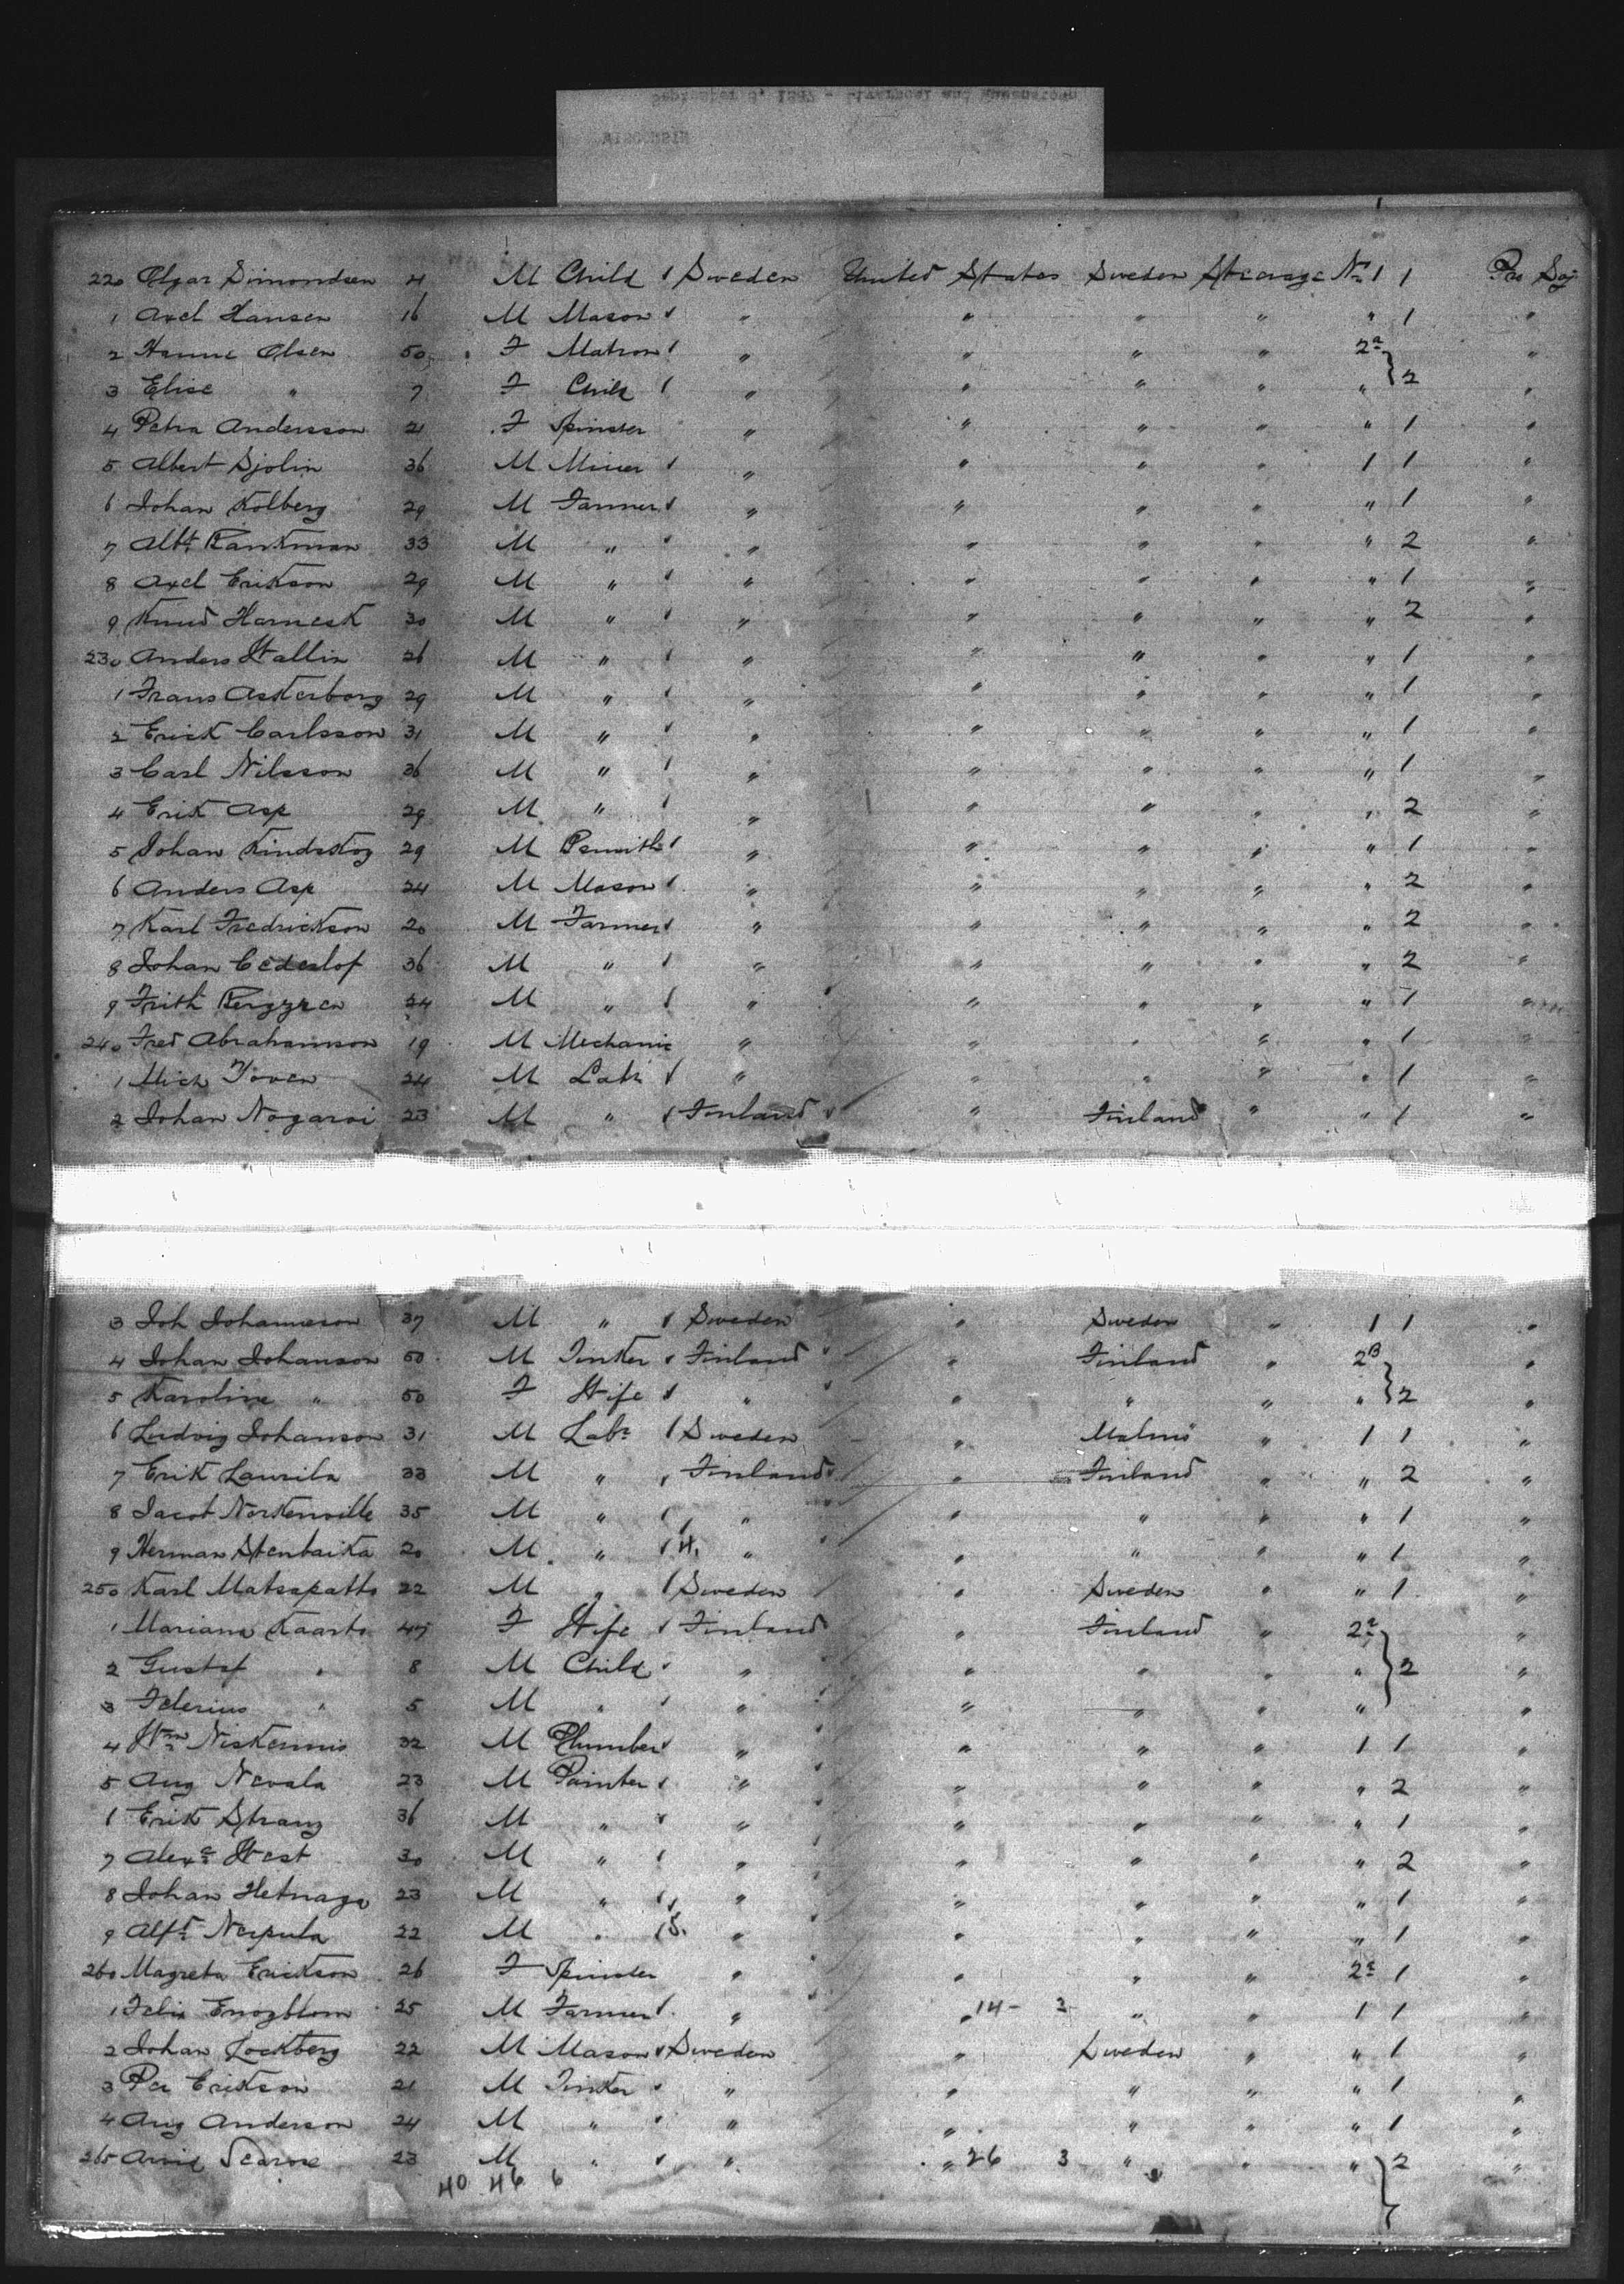 220 Olgar Simondsen 4 M Child 1 Sweden United States Sweden Steerage No 1 1 Pro Soj
1 Axel Hansen 16 M Mason " " " " " 1 "
2 Hanne Olsen 50 F Matron " " " " 2a "
3 Elise " 7 F Child " " " " " } 2 "
4 Petra Andersson 21 F Spinster " " " " " 1 "
5 Albert Sjolin 36 M Miner " " " " 1 1 "
6 Johan Kolberg 29 M Farmer " " " " " 1 "
7 Albt Rankman 33 M " " " " " " 2 "
8 Axel Erikson 29 M " " " " " " 1 "
9 Knud Harnesk 30 M " " " " " " 2 "
230 Anders Wallin 26 M " " " " " " 1 "
1 Frans Askerborg 29 M " " " " " " 1 "
2 Erick Carlsson 31 M " " " " " " 1 "
3 Carl Nilsson 36 M " " " " " " 1 "
4 Erik Asp 29 M " " " " " " 2 "
5 Johan Kindskog 29 M " " " " " 1 "
6 Anders Asp 24 M Mason " " " " " 2 "
7 Karl Fredrickson 20 M Farmer " " " " " 2 "
8 Johan Cederlof 36 M " " " " " " 2 "
9 Frith 24 M " " " " " " 1 "
240 Fred Abrahamson 19 M Mechanic " " " " " 1 "
1 Mich 24 M Labr " " " " " 1 "
2 Johan Nogaroi 23 M " Finland " Finland " " 1 "
3 Joh Johanneson 37 M " Sweden " Sweden " 1 1 "
4 Johan Johanson 50 M Tinker Finland " Finland " 2B "
5 Karoline " 50 F Wife " " " " " } 2 "
6 Ludvig Johanson 31 M Labr Sweden " Malmö " 1 1 "
7 Erik Laurila 33 M " Finland " Finland " " 2 "
8 Jacob 35 M " " " " " " 1 "
9 Herman Stenbaika 20 M " 4. " " " " " 1 "
250 Karl Matsapatto 22 M " Sweden " Sweden " " 1 "
1 Mariana Kaarto 47 F Wife Finland " Finland " 2a "
2 Gustaf " 8 M Child " " " " " } 2 "
3 " 5 M " " " " " " "
4 Wm Niskennis 32 M Plumber " " " " 1 1 "
5 Aug Nevala 23 M Painter " " " " " 2 "
6 Erik Strang 36 M " " " " " " 1 "
7 Alexr West 30 M " " " " " " 2 "
8 Johan Hetnaga 23 M " " " " " " 1 "
9 Alfd Nerpula 22 M " 5. " " " " " 1 "
260 Magreta Erickson 26 F Spinster " " " " 2a 1 "
1 Felix Engblom 25 M Farmer " " 14 - 3 - " " 1 1 "
2 Johan Lockberg 22 M Mason Sweden " Sweden " " 1 "
3 Per Erikson 21 M Tinker " " " " " 1 "
4 Aug Anderson 24 M " " " " " " 1 "
265 Arvid 23 M " " " 26 3 " " " 2 "
40 46 6